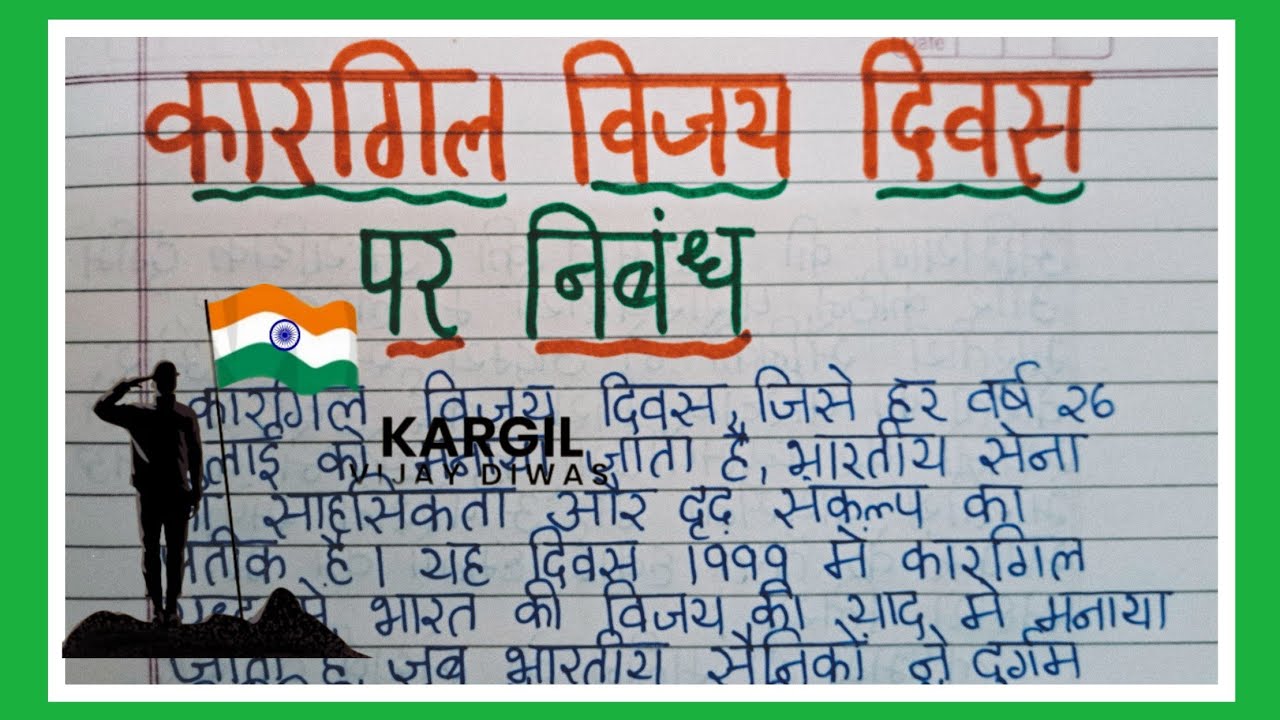 Date
कारगिल विजय दिवस
पर निबंध
कारगिल विजय दिवस, जिसे हर वर्ष २६
KARGIL
VIJAY DIWAS
को जाता है, भारतीय सेना
साहसिकता और दृढ़ संकल्प का
है। यह दिवस १९९९ में कारगिल
में भारत की विजय की याद में मनाया
जाता है, जब भारतीय सैनिकों ने दुर्गम